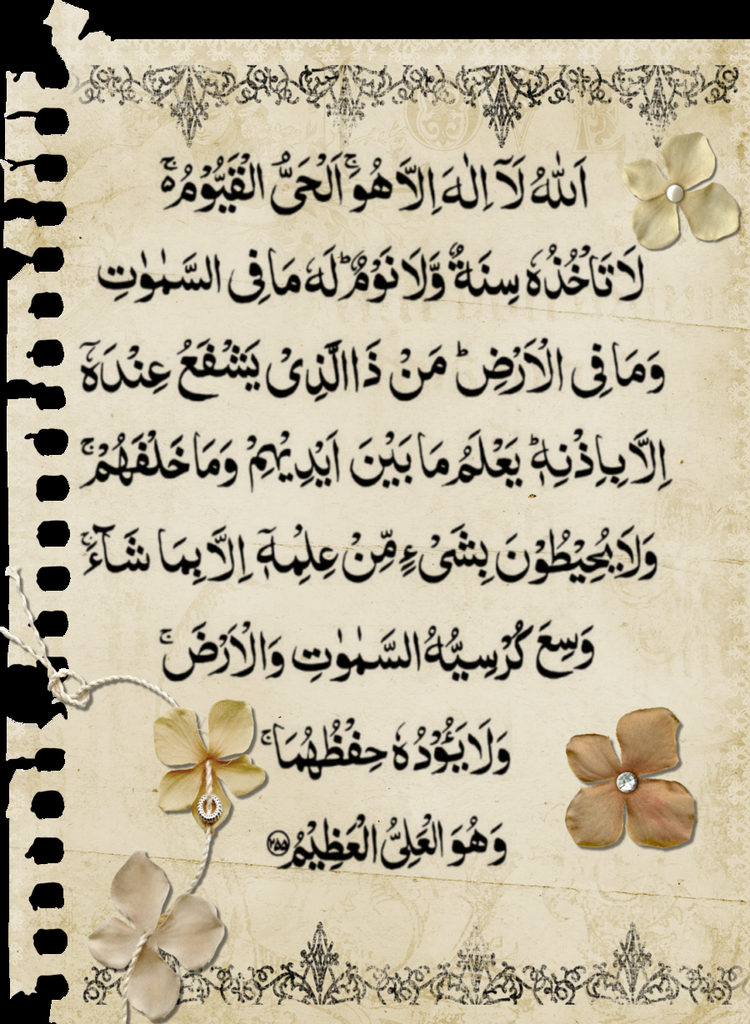 اَللّٰهُ لَآ اِلٰهَ اِلَّا هُوَ ۚ اَلْحَیُّ الْقَیُّوْمُ ەۚ
لَا تَاْخُذُهٗ سِنَةٌ وَّلَا نَوْمٌ ؕ لَهٗ مَا فِی السَّمٰوٰتِ
وَمَا فِی الْاَرْضِ ؕ مَنْ ذَا الَّذِیْ یَشْفَعُ عِنْدَهٗۤ
اِلَّا بِاِذْنِهٖ ؕ یَعْلَمُ مَا بَیْنَ اَیْدِیْهِمْ وَمَا خَلْفَهُمْ ۚ
وَلَا یُحِیْطُوْنَ بِشَیْءٍ مِّنْ عِلْمِهٖۤ اِلَّا بِمَا شَآءَ ۚ
وَسِعَ كُرْسِیُّهُ السَّمٰوٰتِ وَالْاَرْضَ ۚ
وَلَا یَـُٔوْدُهٗ حِفْظُهُمَا ۚ
وَهُوَ الْعَلِیُّ الْعَظِیْمُ ﴿۲۵۵﴾